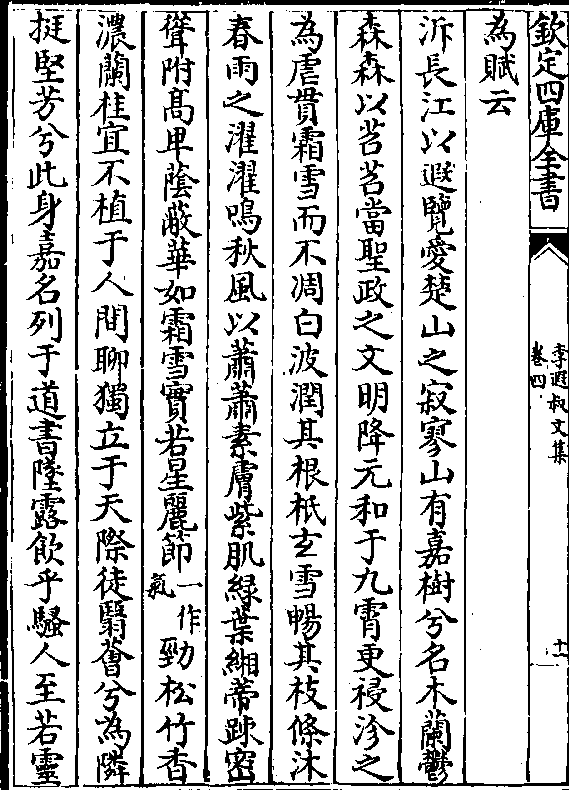 欽定四庫全書
李遐叔文集
卷四
十一
為賦云
泝長江以遐覽愛楚山之寂寥山有嘉樹兮名木蘭鬱
森森以苕苕當聖政之文明降元和于九霄更祲沴之
為虐貫霜雪而不凋白波潤其根柢玄雪暢其枝條沐
春雨之濯濯鳴秋風以蕭蕭素膚紫肌綠葉緗蔕踈密
聳附高卑蔭蔽華如霜雪實若星麗節一作氣勁松竹香
濃蘭桂宜不植于人間聊獨立于天際徒翳薈兮為隣
挺堅芳兮此身嘉名列于道書墜露飲乎騷人至若靈